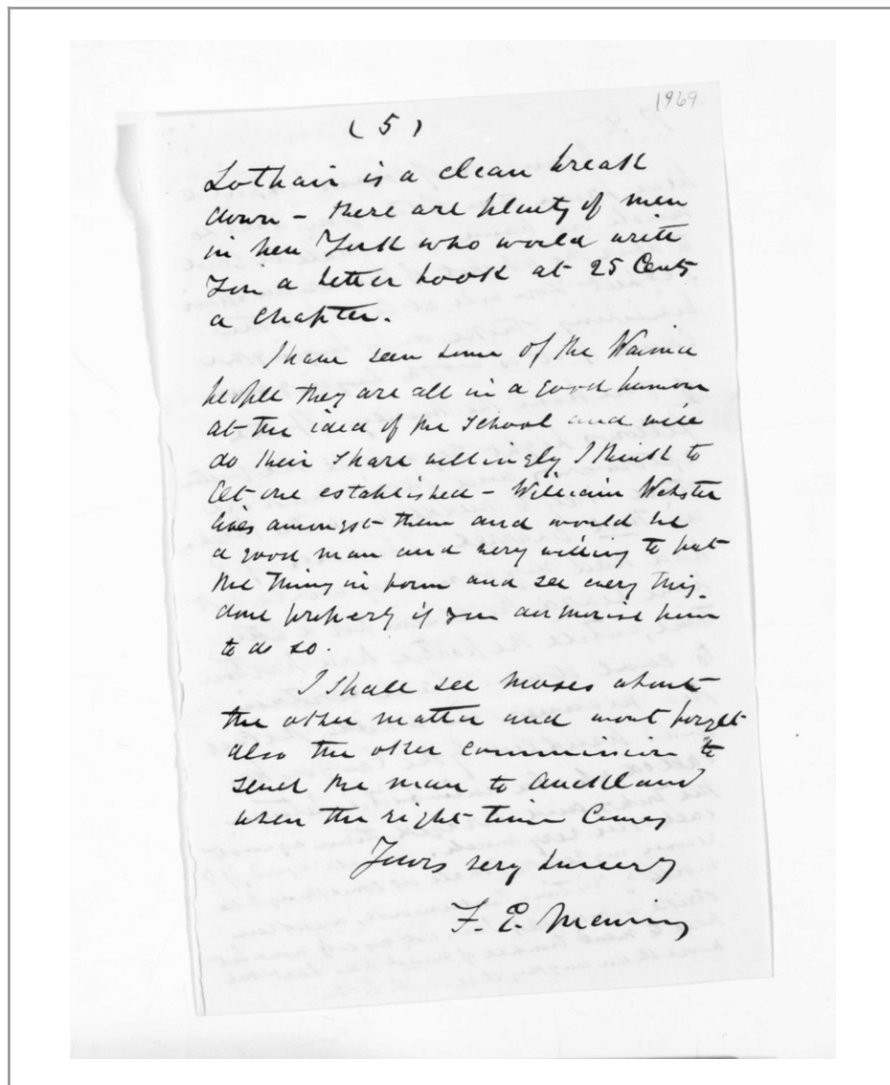 1969
(5)
Lothair is a clean break
down - there are plenty of men
in New York who would write
you a better book at 25 Cents
a chapter.
I have seen some of the Waima
people they are all in a good humour
at the idea of the school and will
do their share willingly I think to
get one established - William Webster
lives amongst them and would be
a good man and very willing to put
the thing in form and see every thing
done properly if you authorise him
to do so.
I shall see Moses about
the other matter and wont forget
also the other commission to
send the man to Auckland
when the right time comes
Yours very sincerely
F. E. Maning